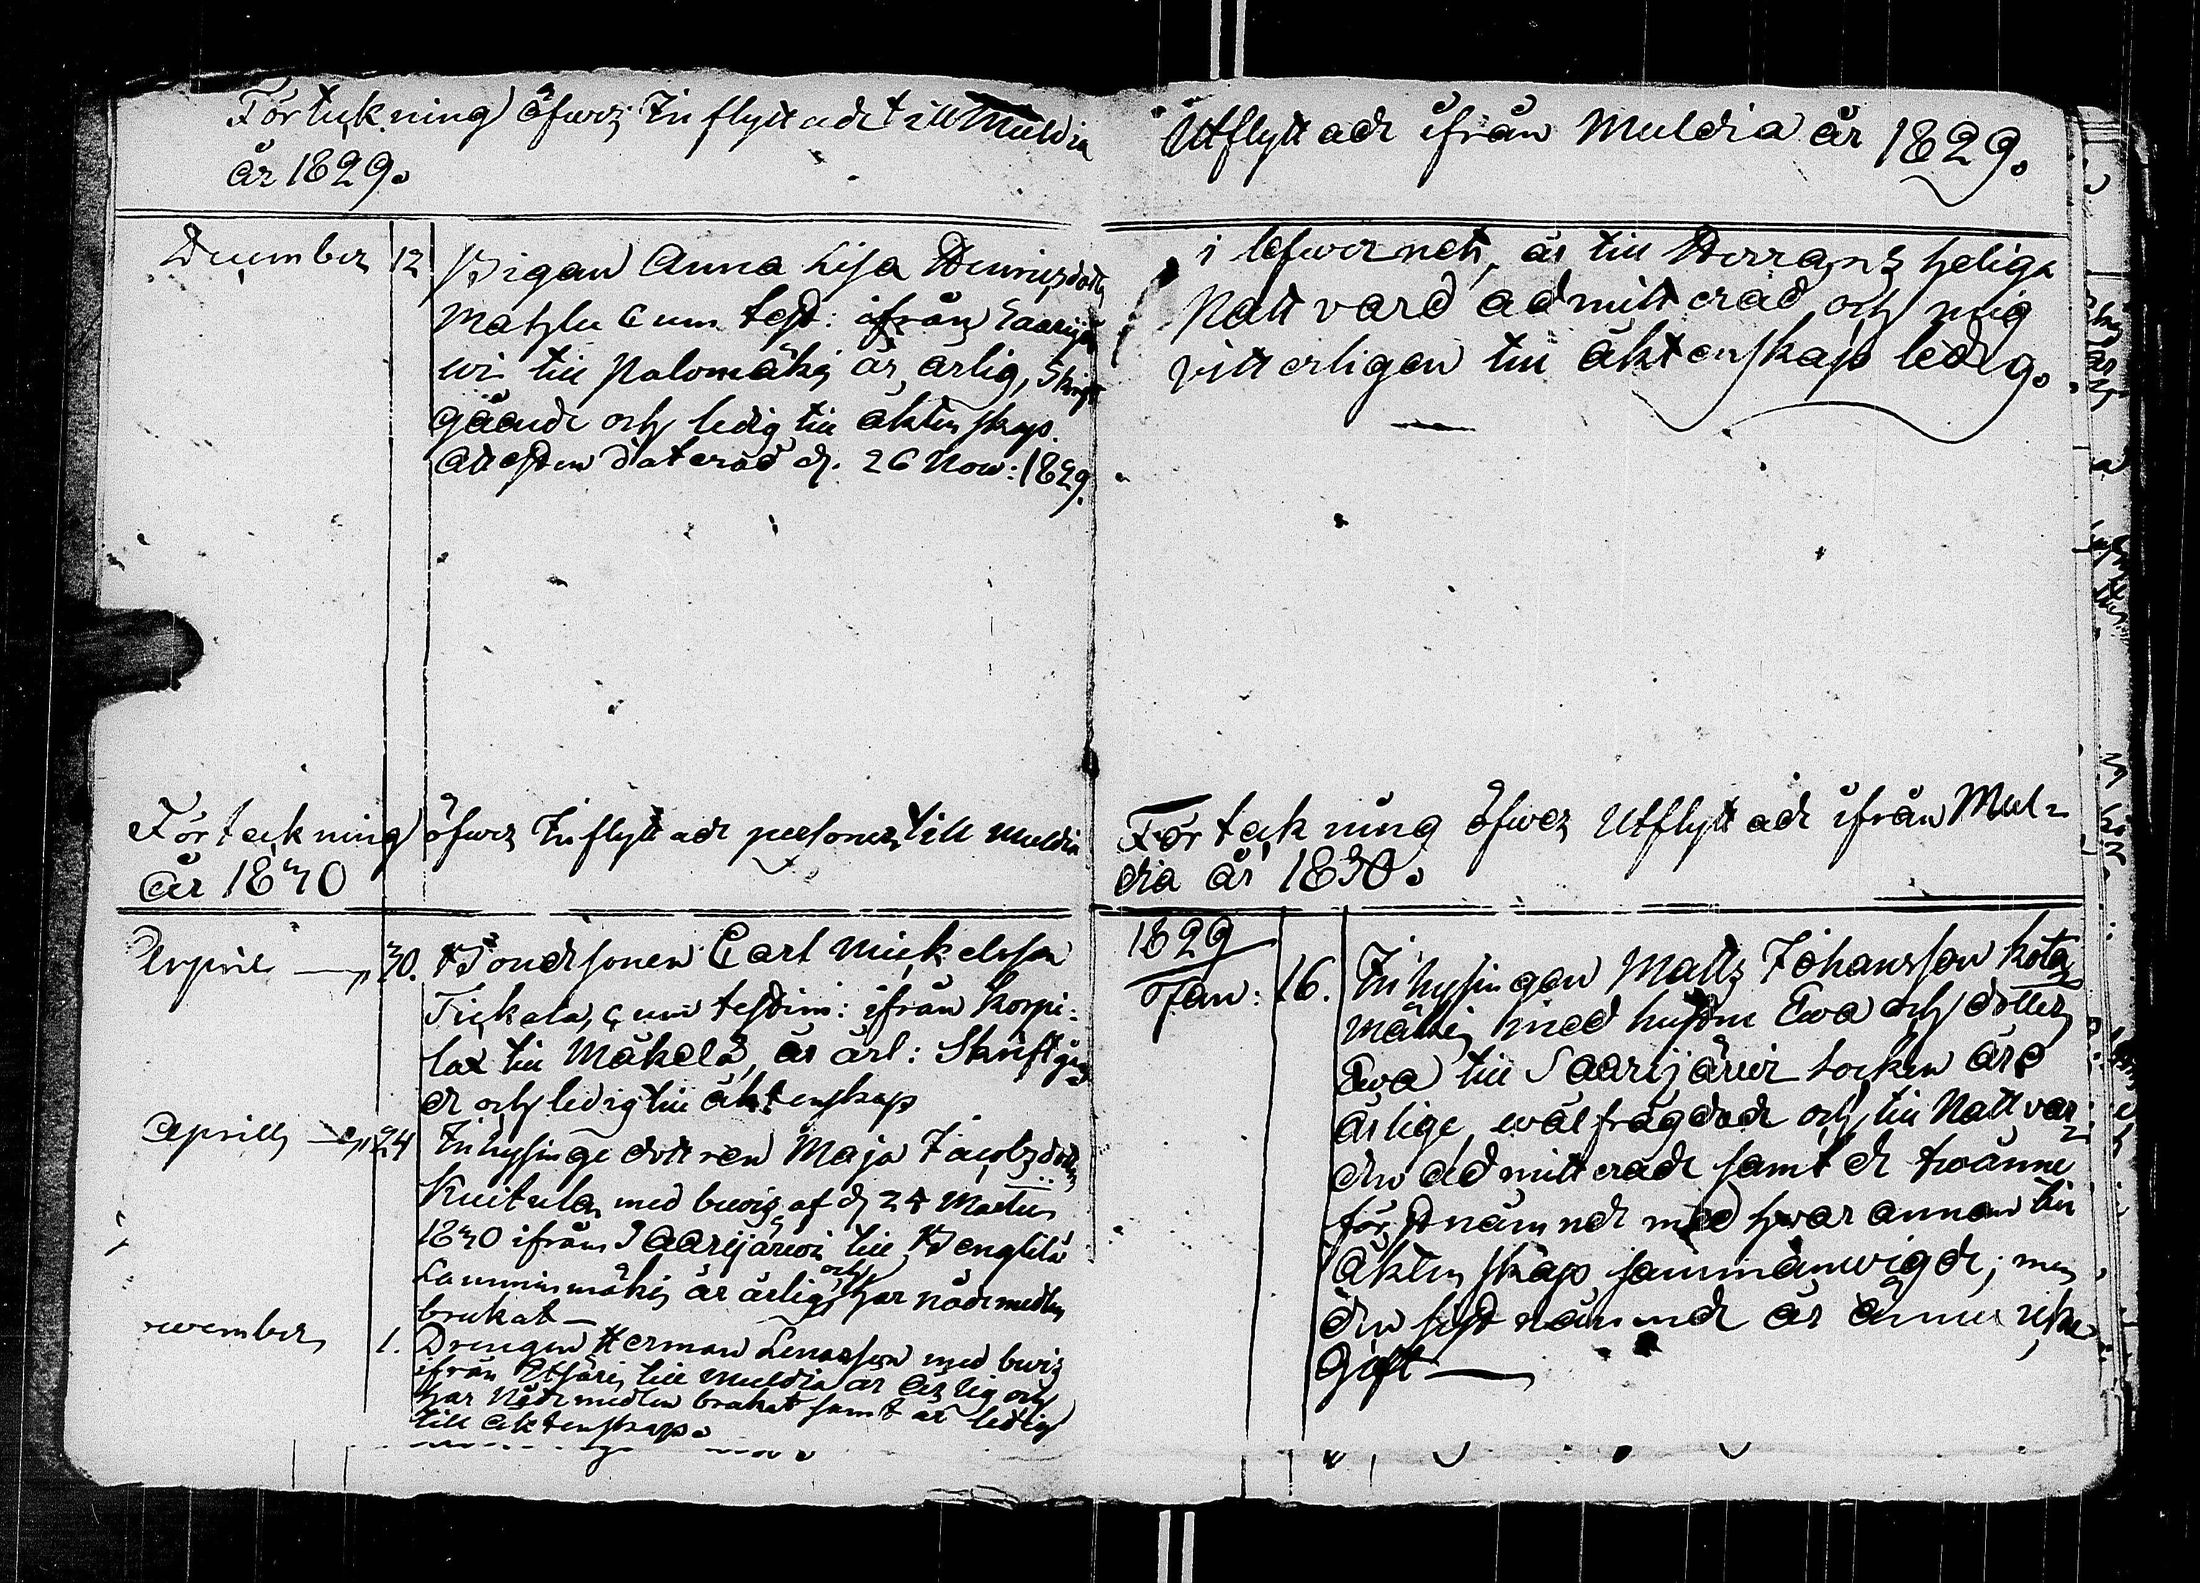 Förtekning öfwer Inflyttade till Muldia
år 1829.
December 12 Pigan Anna Lisa Henricsdotter
Matzlu cum test: ifrån Saarijär
wi till Palomäki är ärlig, Skrift
gående och ledig till äktenskap.
Attesten daterad d. 26 Now: 1829.
Förtekning öfwer Inflyttade personer till Muldia
År 1830
April 30. Bondesonen Carl Mickelsson
Tickala, cum testim: ifrån Korpi-
lax till Mäkelä, är ärl: Skriftgåen
de och ledig till äktenskap
Aprill 24 Inhysinge dottren Maja Jacobsdotter
Kuitula med bewis af d 24 Martii
1830 ifrån Saarijärwi till
Lamminmäki är ärlig och har nådemedlen
brukat —
november 1. Drengen Herman Lenasson med bewis
ifrån Etseri till Muldia är ärlig och
har Nådemedlen brukat samt är ledig
till äktenskap.
Utflyttade ifrån Muldia år 1829.
i lefwernet, är till Herrans heliga
Nattvard admitterad och mig
vitterligen till äktenskap ledig.
Förtekning öfwer Utflyttade ifrån Mul-
dia år 1830.
1829
Jan: 16. Inhysingen Matts Johansson Kota
mäki med hustru Ewa och dotter
Ewa till Saarijärwi Socken äro
ärlige, wälfrägdade och till Nattvar-
den admitterade samt de twänne
förstnämnde med hwar annan till
äktenskap sammanwigde; men
den sistnämnde är ännu icke
Gift —